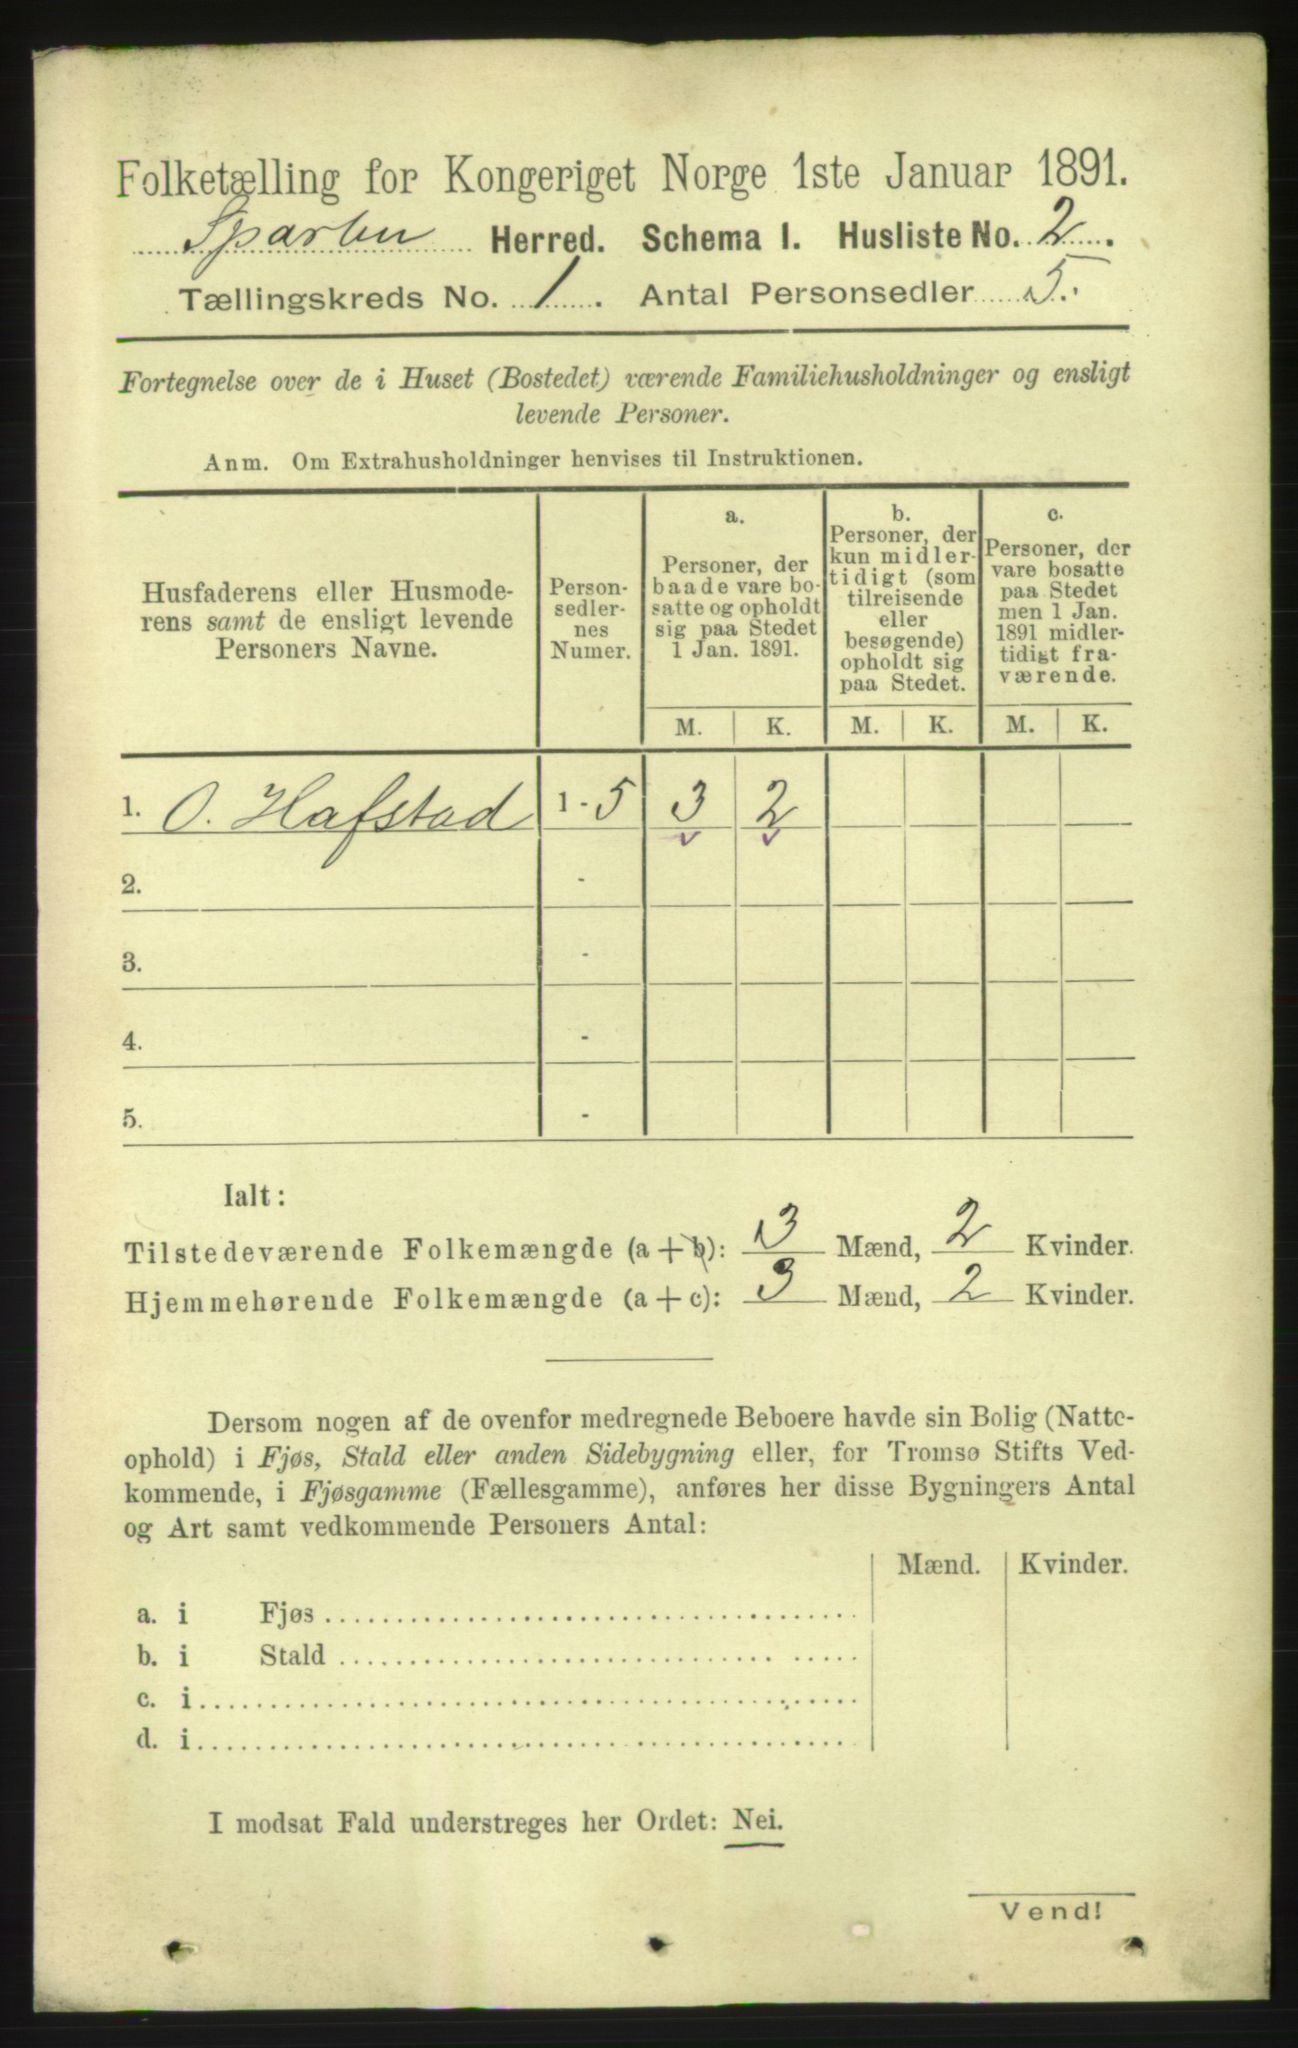 Folketælling for Kongeriget Norge 1ste Januar 1891.
Sparbu Herred. Schema I. Husliste No. 2.
Tællingskreds No. 1. Antal Personsedler 5.
Fortegnelse over de i Huset (Bostedet) værende Familiehusholdninger og ensligt
levende Personer.
Anm. Om Extrahusholdninger henvises til Instruktionen.
Husfaderens eller Husmode-
rens samt de ensligt levende
Personers Navne.
Person-
sedler-
nes
Numer.
a.
Personer, der
baade vare bo-
satte og opholdt
sig paa Stedet
1 Jan. 1891.
b.
Personer, der
kun midler-
tidigt (som
tilreisende
eller
besøgende)
opholdt sig
paa Stedet.
c.
Personer, der
vare bosatte
paa Stedet
men 1 Jan.
1891 midler-
tidigt fra-
værende.
M. K. M. K. M. K.
1. O. Hafstad 1 - 5 3 2
2. -
3. -
4. -
5. -
Ialt:
Tilstedeværende Folkemængde (a + b): 3 Mænd, 2 Kvinder.
Hjemmehørende Folkemængde (a + c): 3 Mænd, 2 Kvinder.
Dersom nogen af de ovenfor medregnede Beboere havde sin Bolig (Natte-
ophold) i Fjøs, Stald eller anden Sidebygning eller, for Tromsø Stifts Ved-
kommende, i Fjøsgamme (Fællesgamme), anføres her disse Bygningers Antal
og Art samt vedkommende Personers Antal:
Mænd. Kvinder.
a. i Fjøs
b. i Stald
c. i
d. i
I modsat Fald understreges her Ordet: Nei.
Vend!